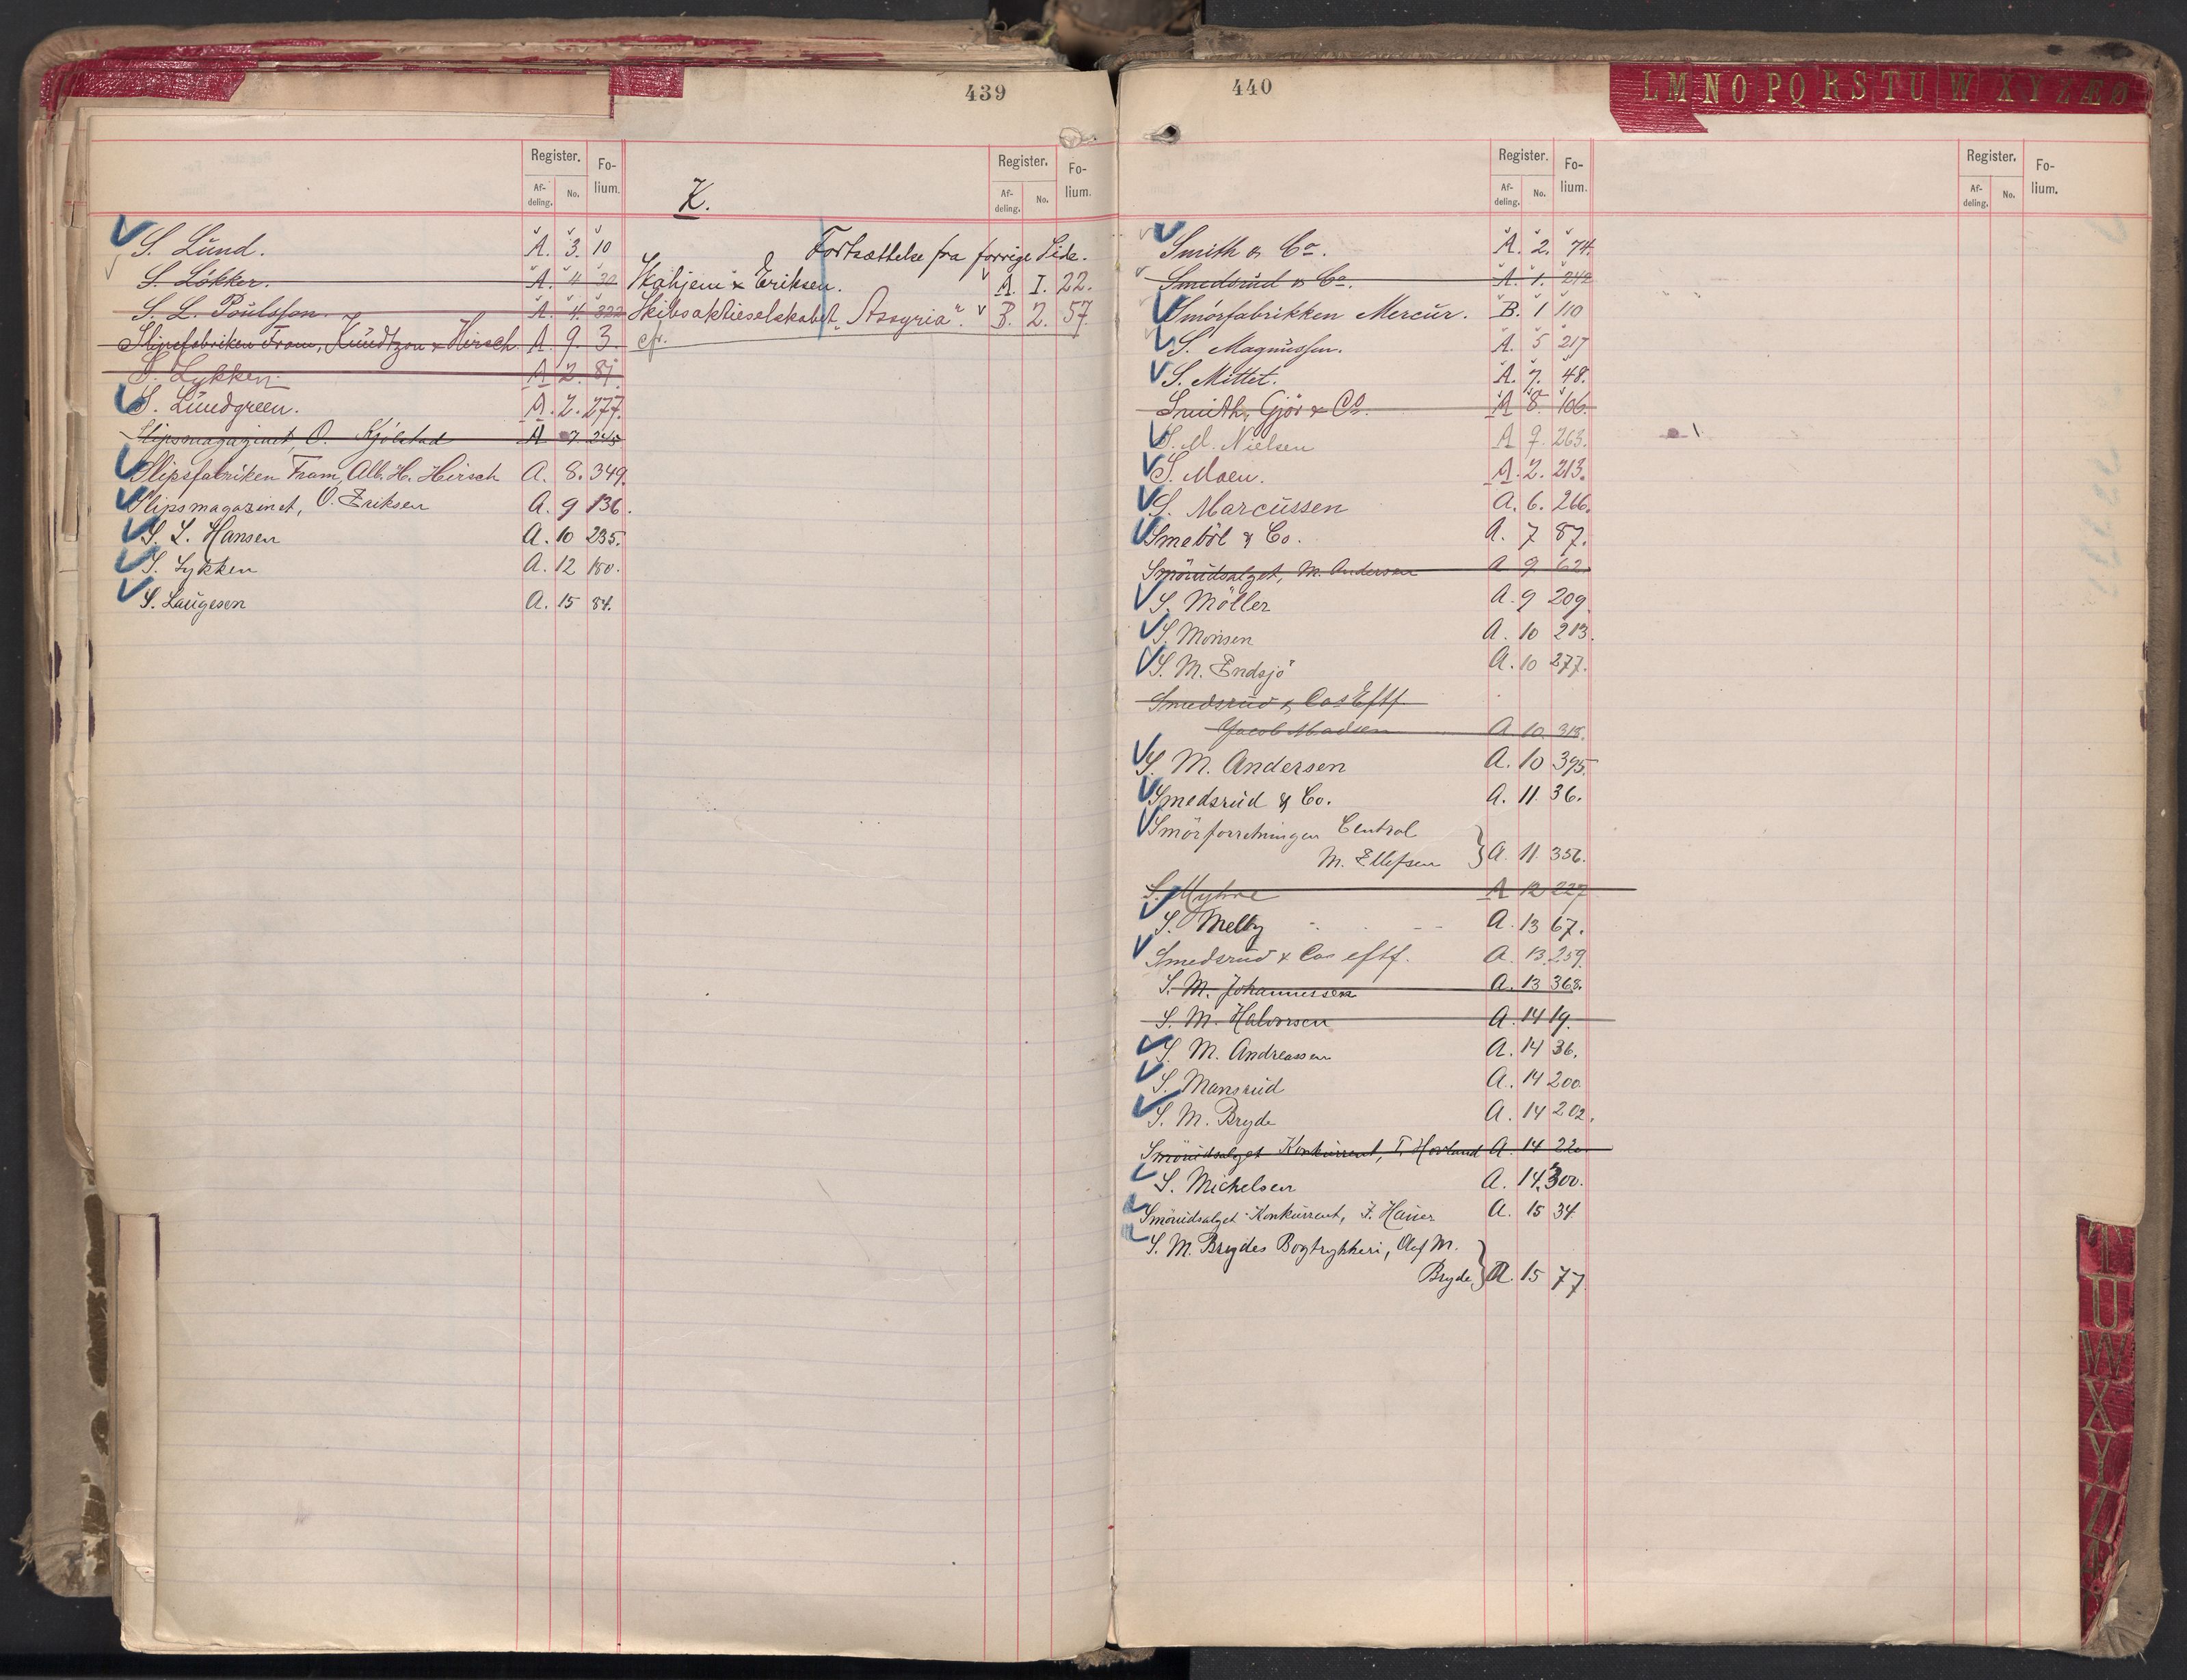 439
Register. Fo-
lium.
Af-
deling. No.
S. Lund. A. 3. 10
S. Løkker. A. 4 30
S. L. Poulsson. A. 4. 322
Slipsfabriken Fram, Kundtzon & Hirsch A. 9. 3.
S. Lykken A 2. 81.
S. Lundgreen. A. 2. 277.
Slipsmagazinet, O. Kjölstad A 7 245
Slipsfabriken Fram, Alb. H. Hirsch A. 8. 349.
Slipsmagazinet, O. Eriksen A. 9 136.
S. L. Hansen A. 10 235.
S. Lykken A. 12 150.
S. Laugesen A. 15 84.
K.
Register. Fo-
lium.
Af-
deling. No.
Fortsættelse fra forrige Side.
Skahjem & Eriksen. A. I. 22.
Skibsaktieselskabet "Assyria". B. 2. 57.
cfr.
440
L M N O P Q R S T U W X Y Z Æ Ø
Register. Fo-
lium.
Af-
deling. No.
Smith & Co. A. 2. 74.
Smedsrud & Co. A. 1. 242
Smörfabrikken Mercur. B. 1 110
S. Magnussen. A. 5 217
S. Mittet. A. 7. 48.
Smith, Gjör & Co. A 8. 106.
S. M. Nielsen A 9. 263.
S. Moen. A. 2. 213.
S. Marcussen A. 6. 266.
Smeböl & Co. A. 7 87.
Smörudsalget, M. Andersen A 9. 62.
S. Möller A. 9 209.
S. Monsen A. 10 213.
S. M. Endsjö A. 10 277.
Smedsrud & Cos Eftf.
Jacob Madsen A 10. 318.
S. M. Andersen A. 10 395.
Smedsrud & Co. A. 11. 36.
Smörforretningen Central
M. Ellefsen } A. 11. 356.
S. Myhre A 12 227
S. Melby A. 13 67.
Smedsrud & Cos eftf. A. 13. 259.
S. M. Johannessen A. 13 368.
S. M. Halvorsen A. 14 19.
S. M. Andreassen A. 14 36.
S. Mansrud A. 14 200.
S. M. Bryde A. 14 202.
Smörudsalget Konkurrent, T. Hovland A. 14 22
S. Michelsen A. 14. 300.
Smörudsalget Konkurrent, F. Hauer A. 15 34
S. M. Brydes Bogtrykkeri, Olaf M.
Bryde } A. 15 77.
Register. Fo-
lium.
Af-
deling. No.
T
U
W
X
Y
Z